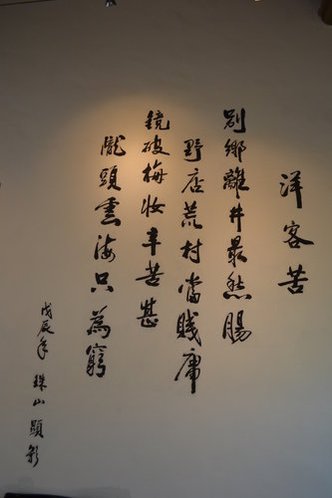 洋客苦
別鄉離井最愁腸
野店荒村當賤庸
鏡破梅妝辛苦甚
隴頭雲海只為窮
戊辰年 珠山 顯影